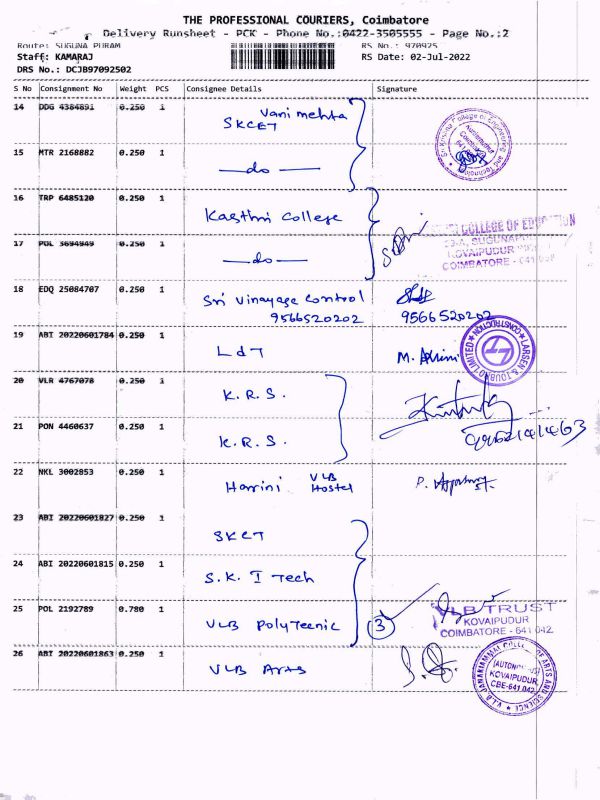 THE PROFESSIONAL COURIERS, Coimbatore
Delivery Runsheet - PCK - Phone No.:0422-3505555 - Page No.:2
Route: SUGUNA PURAM RS No.: 970925
Staff: KAMARAJ RS Date: 02-Jul-2022
DRS No.: DCJB97092502
S No Consignment No Weight PCS Consignee Details Signature
14 DDG 4384891 0.250 1 Vani mehta
SKCET
15 MTR 2168882 0.250 1 —do—
16 TRP 6485120 0.250 1 Kasthri College
17 POL 3694949 0.250 1 —do—
COLLEGE OF EDUCATION
KOVAIPUDUR
COIMBATORE - 641
18 EDQ 25084707 0.250 1 Sri Vinayaga Control
9566520202 9566520202
19 ABI 20220601784 0.250 1 L&T M.
LARSEN & TOUBRO LIMITED CONSTRUCTION
20 VLR 4767078 0.250 1 K.R.S.
21 PON 4460637 0.250 1 K.R.S.
22 NKL 3002853 0.250 1 Harrini VLB
Hostel P.
23 ABI 20220601827 0.250 1 SKCT
24 ABI 20220601815 0.250 1 S.K. I Tech
25 POL 2192789 0.780 1 VLB Polyteenic 3
VLB TRUST
KOVAIPUDUR
COIMBATORE - 641 042.
26 ABI 20220601863 0.250 1 VLB Arts
(AUTONOMOUS)
KOVAIPUDUR
CBE-641 042.